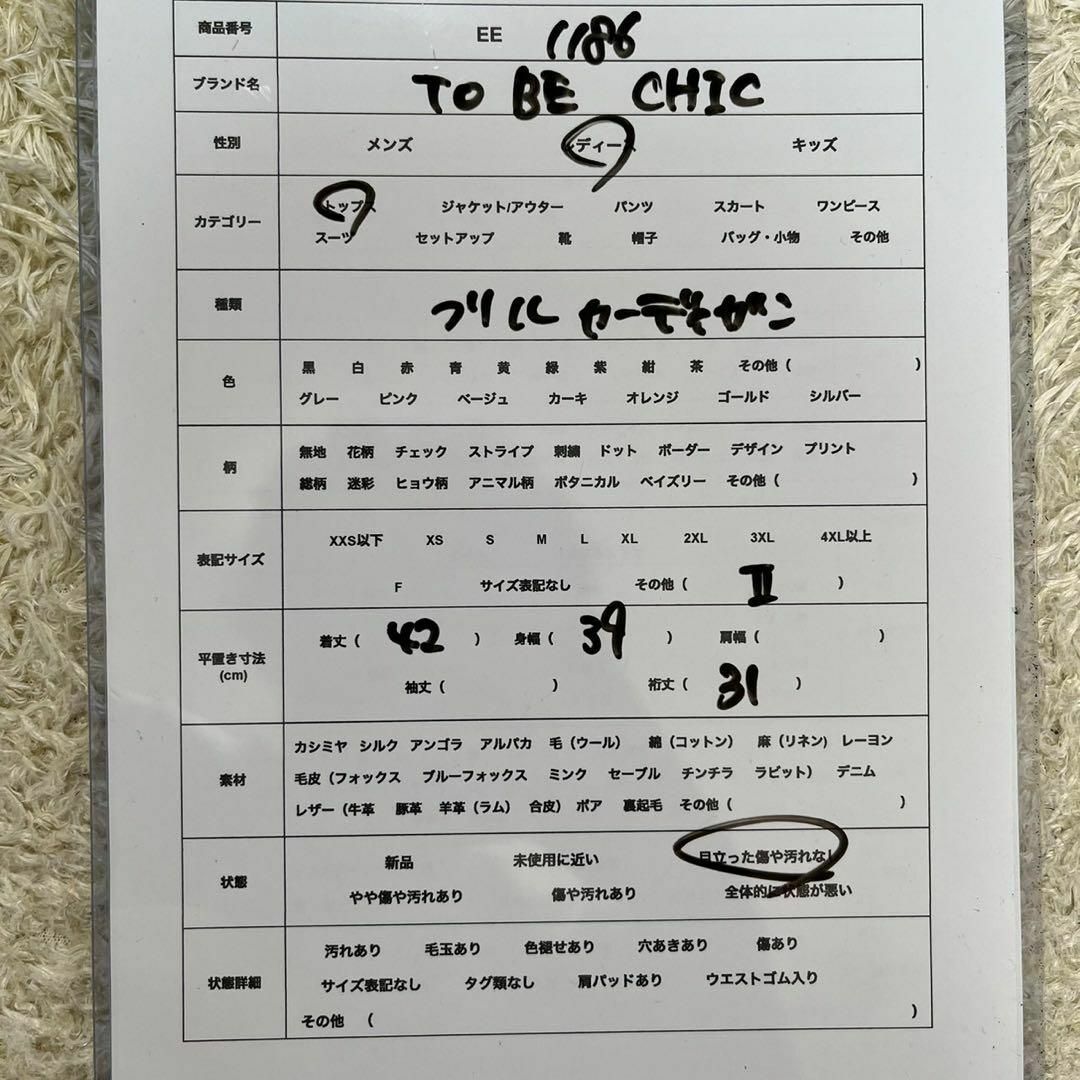 商品番号 EE 1186
ブランド名 TO BE CHIC
性別 メンズ レディース キッズ
カテゴリー トップス ジャケット/アウター パンツ スカート ワンピース
スーツ セットアップ 靴 帽子 バッグ・小物 その他
種類 フリル カーディガン
色 黒 白 赤 青 黄 緑 紫 紺 茶 その他（ ）
グレー ピンク ベージュ カーキ オレンジ ゴールド シルバー
柄 無地 花柄 チェック ストライプ 刺繍 ドット ボーダー デザイン プリント
総柄 迷彩 ヒョウ柄 アニマル柄 ボタニカル ペイズリー その他（ ）
表記サイズ XXS以下 XS S M L XL 2XL 3XL 4XL以上
F サイズ表記なし その他（ II ）
平置き寸法 (cm) 着丈（ 42 ） 身幅（ 39 ） 肩幅（ ）
袖丈（ ） 裄丈（ 31 ）
素材 カシミヤ シルク アンゴラ アルパカ 毛（ウール） 綿（コットン） 麻（リネン) レーヨン
毛皮（フォックス ブルーフォックス ミンク セーブル チンチラ ラビット） デニム
レザー（牛革 豚革 羊革（ラム） 合皮） ボア 裏起毛 その他（ ）
状態 新品 未使用に近い 目立った傷や汚れなし
やや傷や汚れあり 傷や汚れあり 全体的に状態が悪い
状態詳細 汚れあり 毛玉あり 色褪せあり 穴あきあり 傷あり
サイズ表記なし タグ類なし 肩パッドあり ウエストゴム入り
その他 （ ）